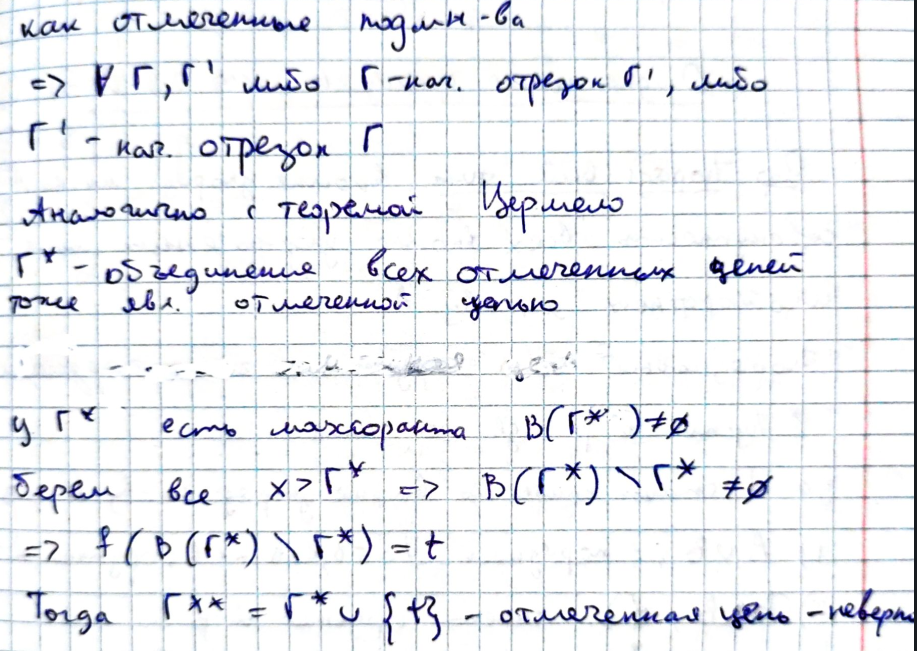 как отмеченные подмн-ва
=> ∀ Г, Г' либо Г-нач. отрезок Г', либо
Г' - нач. отрезок Г
Аналогично с теоремой Цермело
Г* - объединение всех отмеченных цепей
тоже явл. отмеченной цепью
у Г* есть мажоранта B(Г*)≠∅
берем все x>Г* => B(Г*)\Г* ≠∅
=> f(B(Г*)\Г*) = t
Тогда Г** = Г* ∪ {t} - отмеченная цепь -